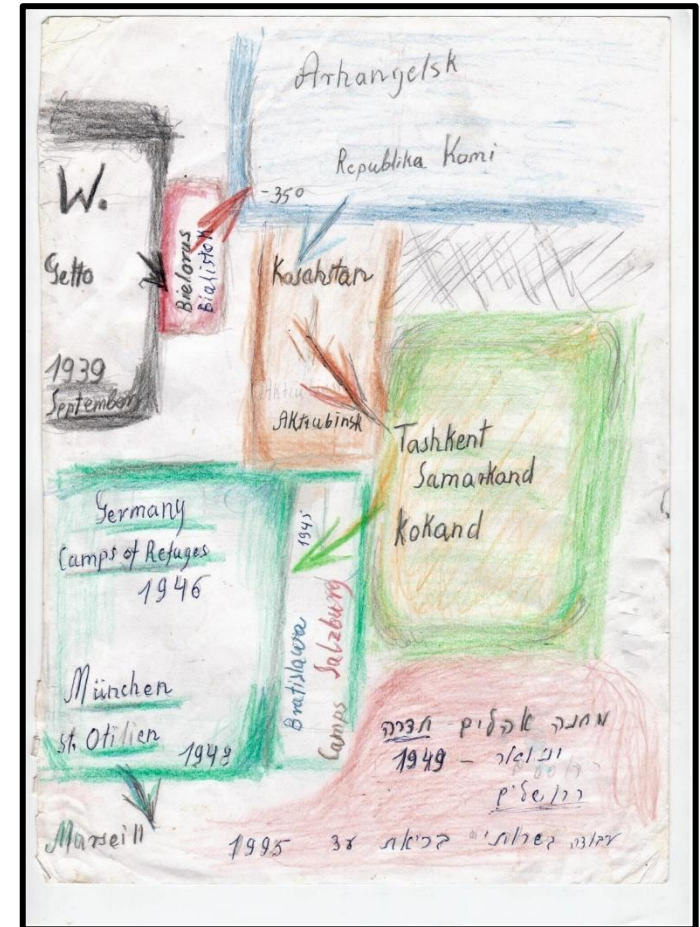 Arhangelsk
Republika Komi
-35°
W.
Getto
1939
September
Bielorus
Bialistok
Kasahstan
Aktiubinsk
Tashkent
Samarkand
Kokand
Germany
Camps of Refuges
1946
München
St. Otilien 1948
1945
Bratislawa
Camps Salzburg
Marseill
מחנה אהלים - חדרה
ינואר - 1949
ירושלים
עבודה בשרותי בריאת עד 1995